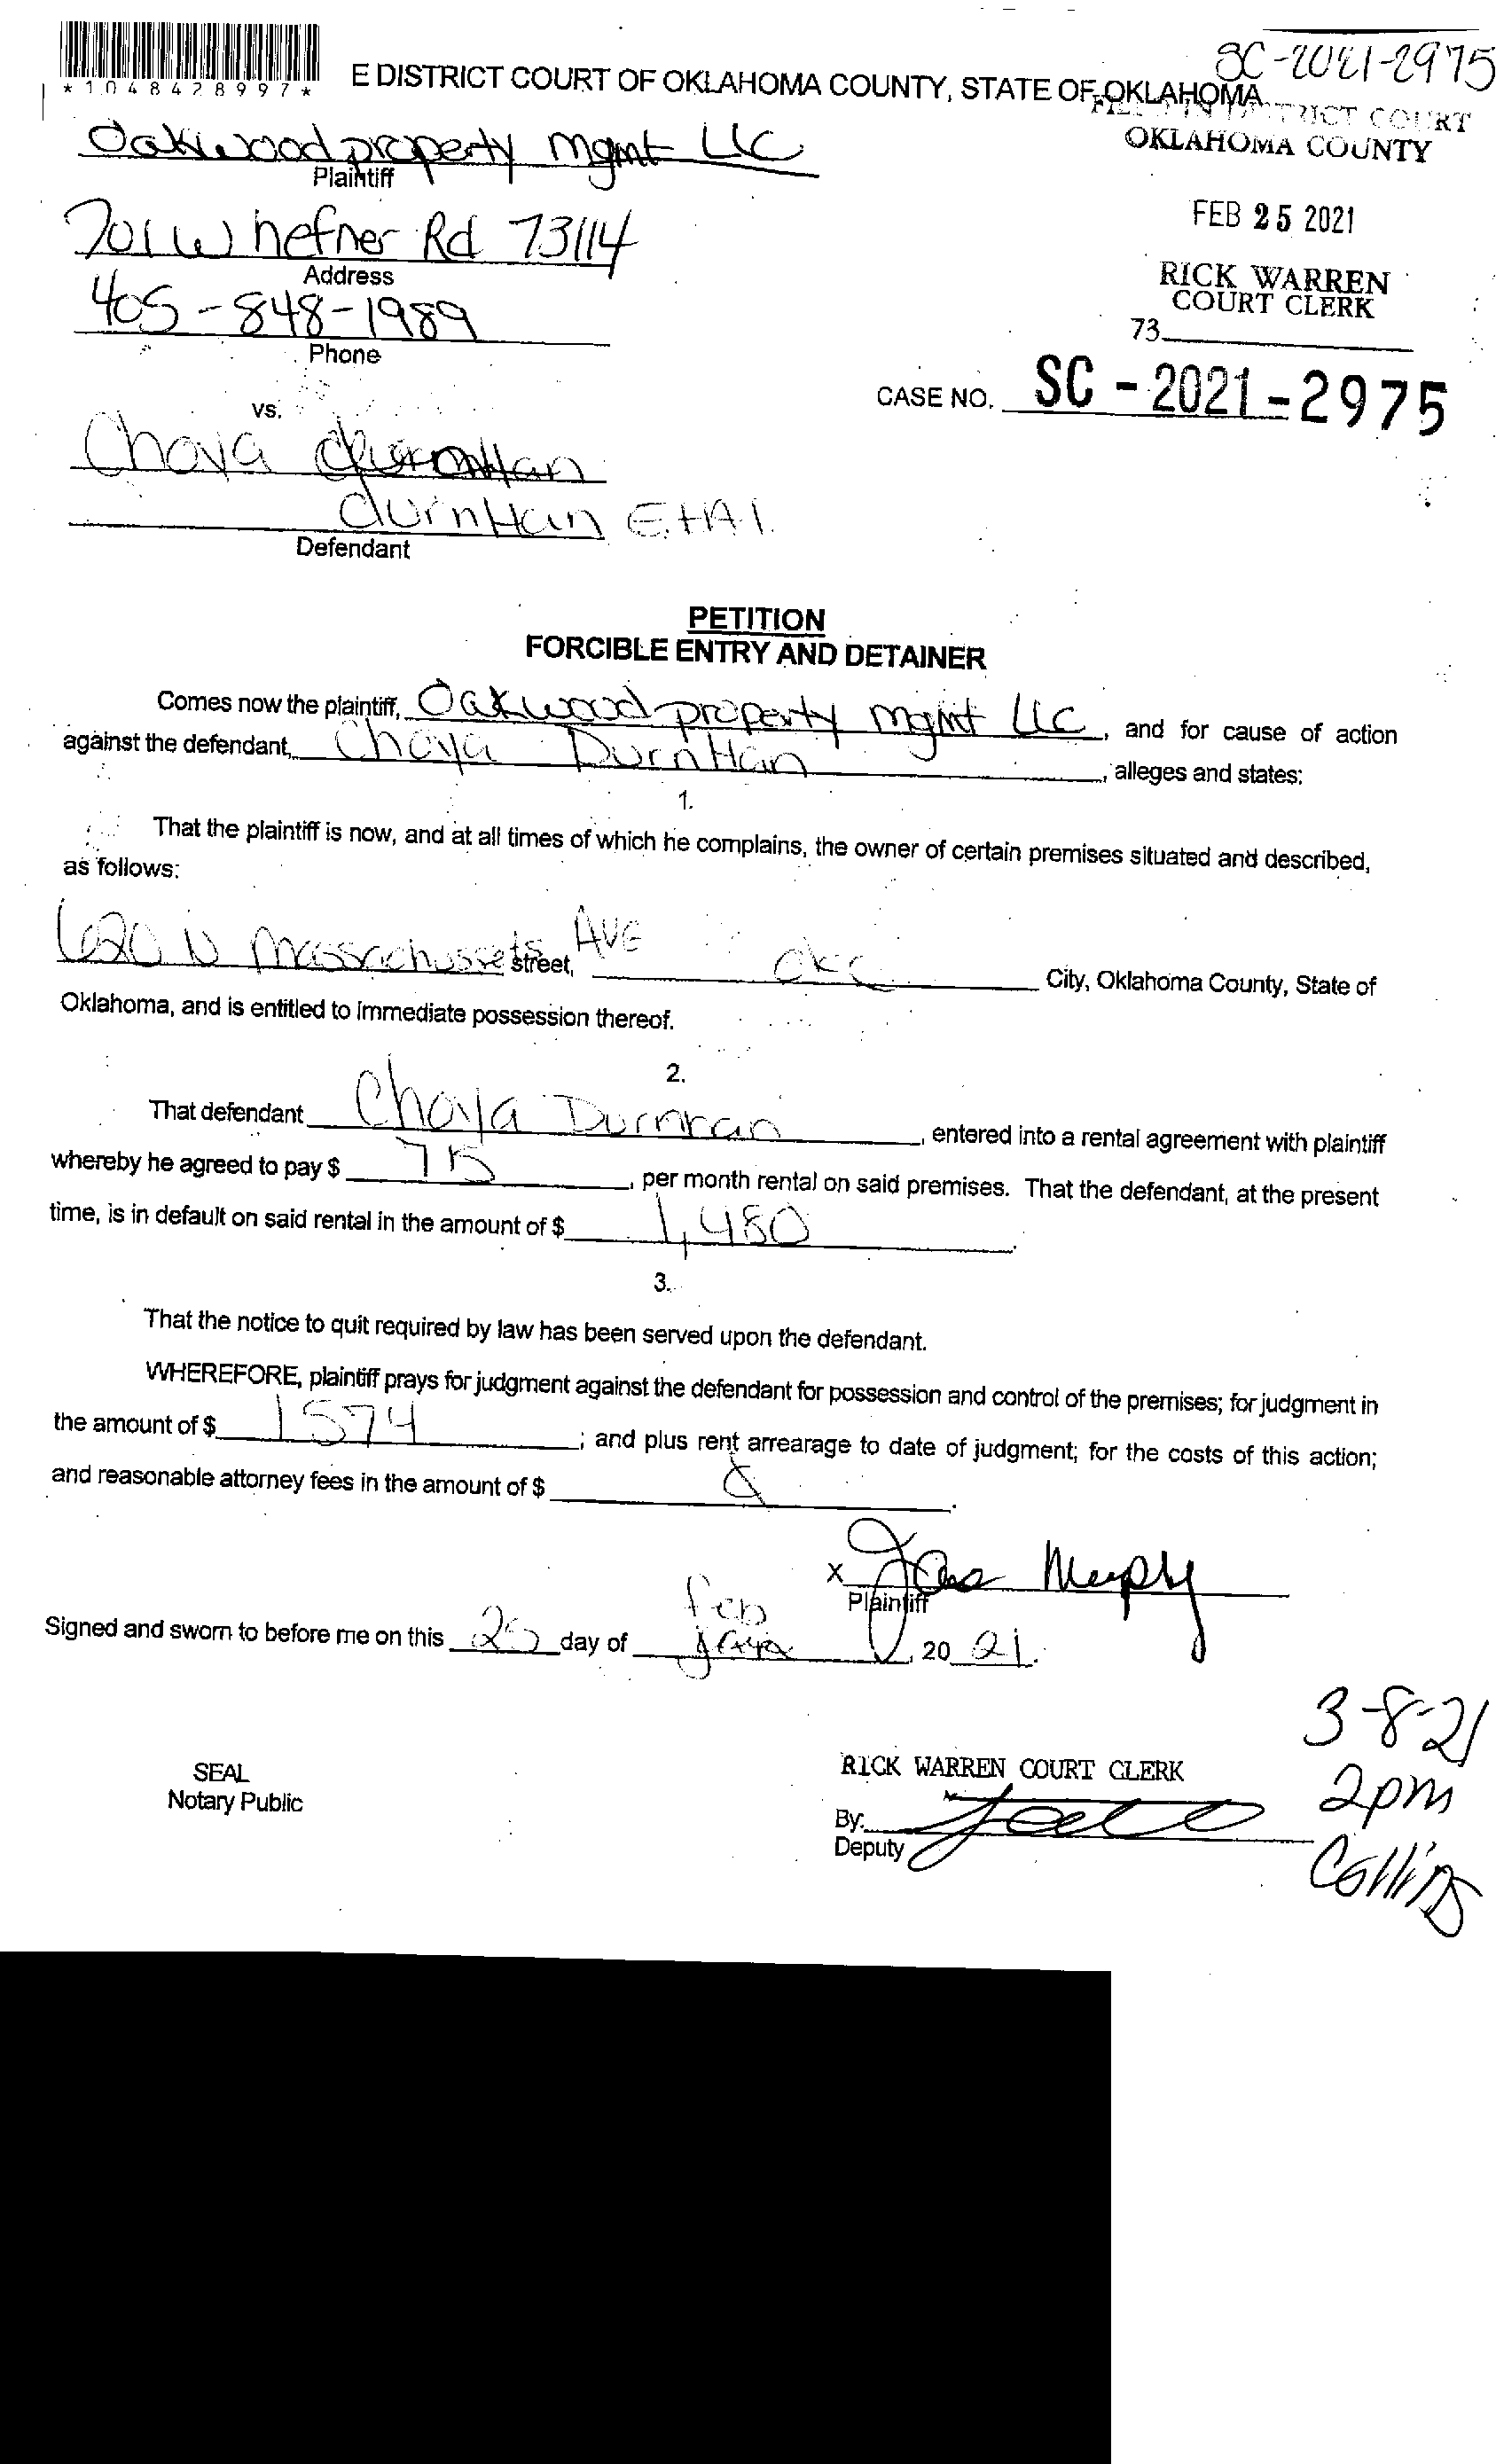 SC-2021-2975
*1048428997*
E DISTRICT COURT OF OKLAHOMA COUNTY, STATE OF OKLAHOMA
FILED IN DISTRICT COURT
OKLAHOMA COUNTY
Oakwood property mgmt LLC
Plaintiff
FEB 25 2021
701 W hefner Rd 73114
Address
RICK WARREN
COURT CLERK
405-848-1989
Phone
73
CASE NO. SC - 2021 - 2975
vs.
Chaya
durnHan Et Al.
Defendant
PETITION
FORCIBLE ENTRY AND DETAINER
Comes now the plaintiff, Oakwood property mgmt LLC, and for cause of action
against the defendant, Chaya DurnHan, alleges and states:
1.
That the plaintiff is now, and at all times of which he complains, the owner of certain premises situated and described,
as follows:
620 N Massachussets street, AVE OKC City, Oklahoma County, State of
Oklahoma, and is entitled to immediate possession thereof.
2.
That defendant Chaya, entered into a rental agreement with plaintiff
whereby he agreed to pay $, per month rental on said premises. That the defendant, at the present
time, is in default on said rental in the amount of $ 1,480.
3.
That the notice to quit required by law has been served upon the defendant.
WHEREFORE, plaintiff prays for judgment against the defendant for possession and control of the premises; for judgment in
the amount of $ 1574; and plus rent arrearage to date of judgment; for the costs of this action;
and reasonable attorney fees in the amount of $.
x Murphy
Plaintiff
Signed and sworn to before me on this 25 day of feb, 20 21.
3-8-21
2pm
Collins
SEAL
Notary Public
RICK WARREN COURT CLERK
By:
Deputy